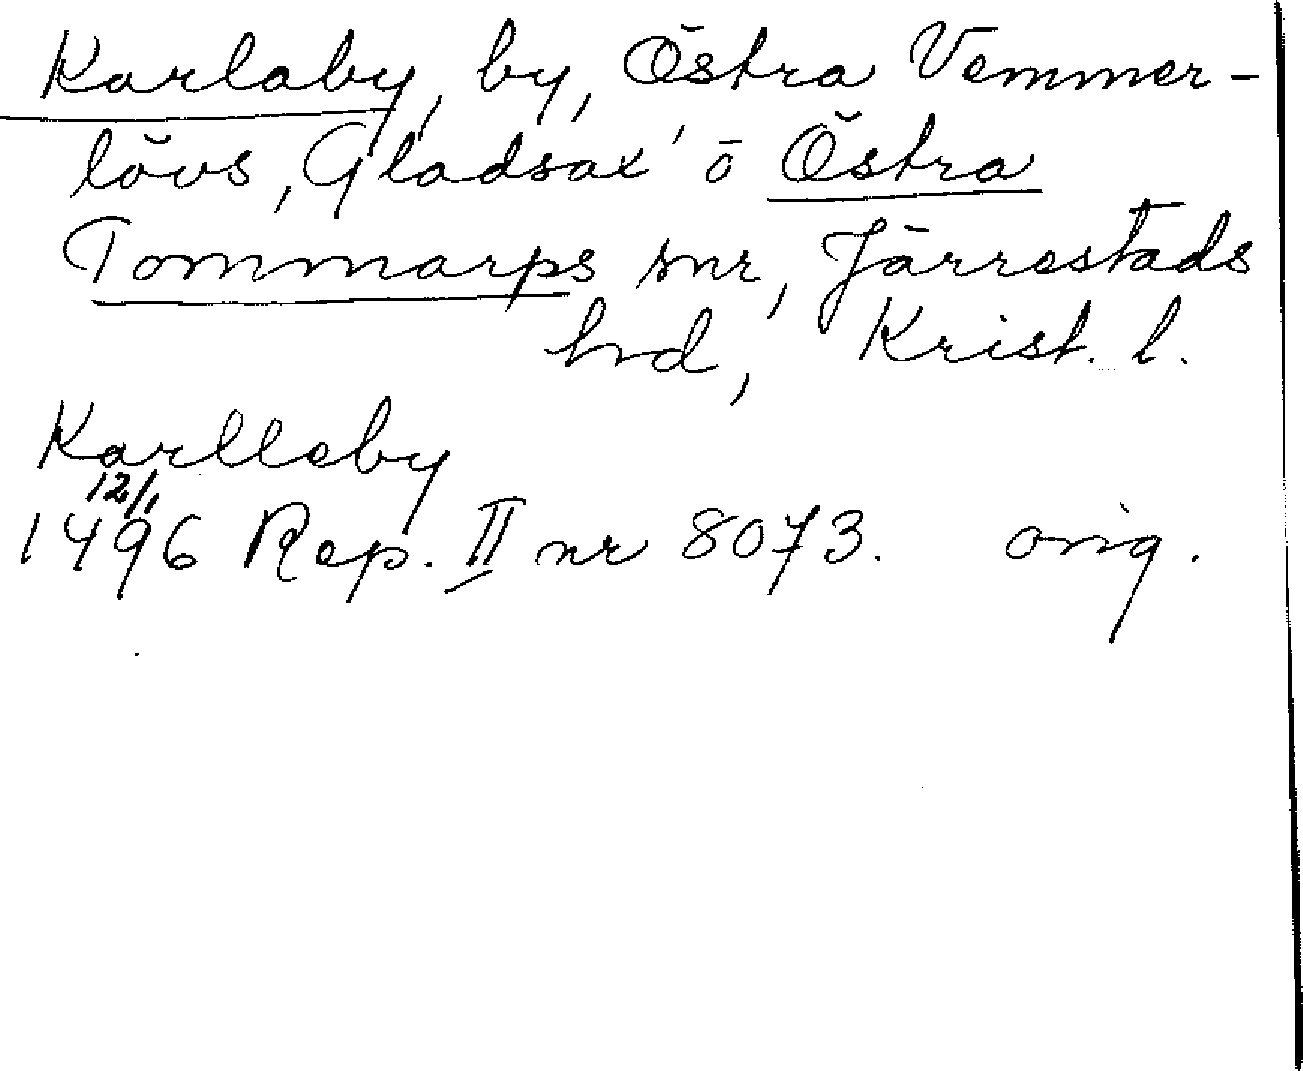 Karlaby, by, Östra Vemmer-
lövs, Gladsax' o Östra
Tommarps snr, Järrestads
hd, Krist. l.
Karlleby
12/1
1496 Rep. II nr 8073. orig.